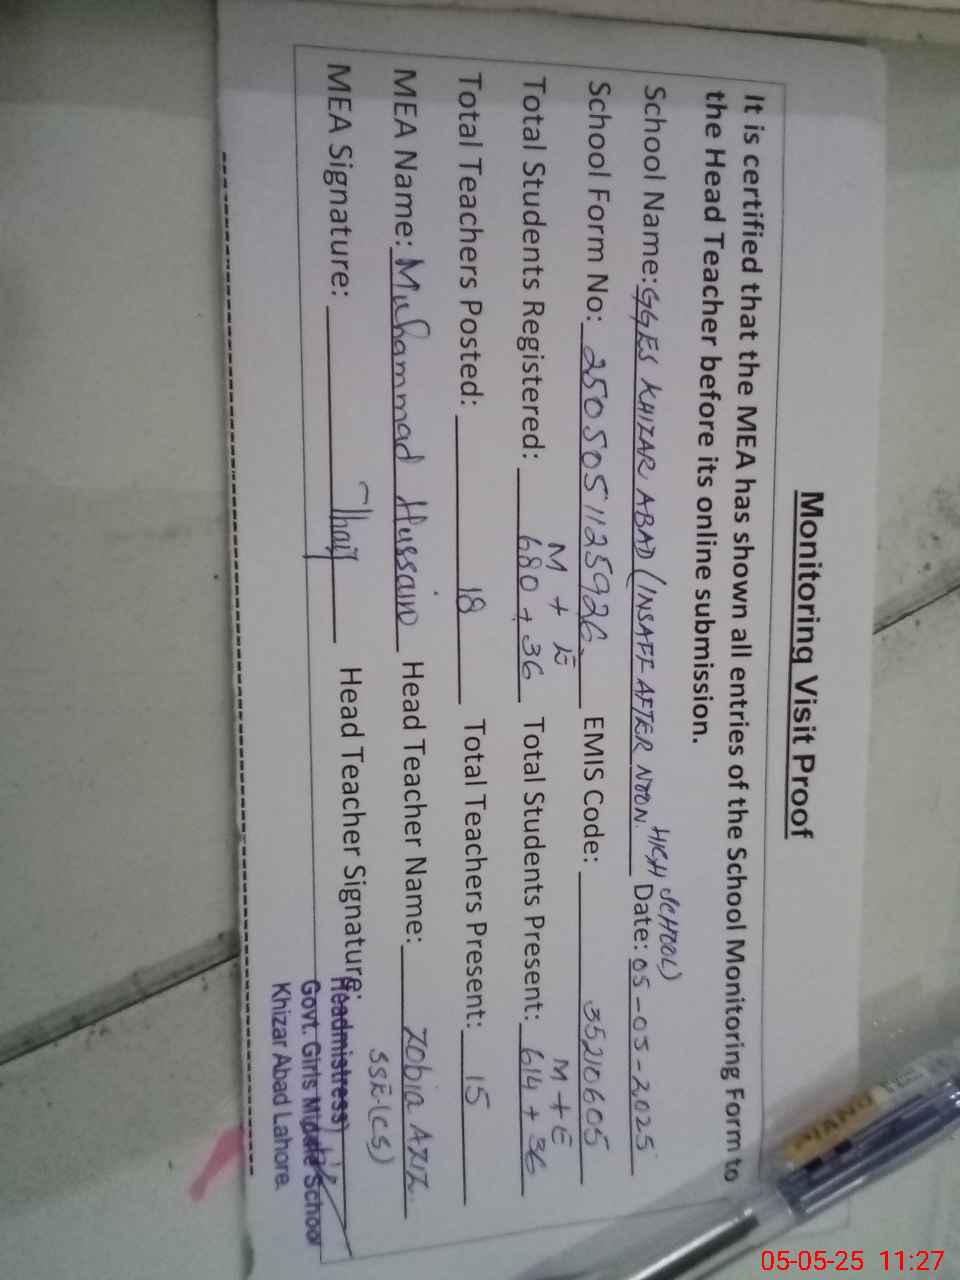 Monitoring Visit Proof
It is certified that the MEA has shown all entries of the School Monitoring Form to
the Head Teacher before its online submission.
School Name: GGES KHIZAR ABAD (INSAFF AFTER NOON HIGH SCHOOL) Date: 05-05-2025
School Form No: 2505051125926 EMIS Code: 35210605
M + E M + E
Total Students Registered: 680 + 36 Total Students Present: 614 + 36
Total Teachers Posted: 18 Total Teachers Present: 15
MEA Name: Muhammad Hussain Head Teacher Name: Zobia Aziz
SSE-(CS)
MEA Signature: Head Teacher Signature:
Headmistress
Govt. Girls Middle School
Khizar Abad Lahore.
05-05-25 11:27